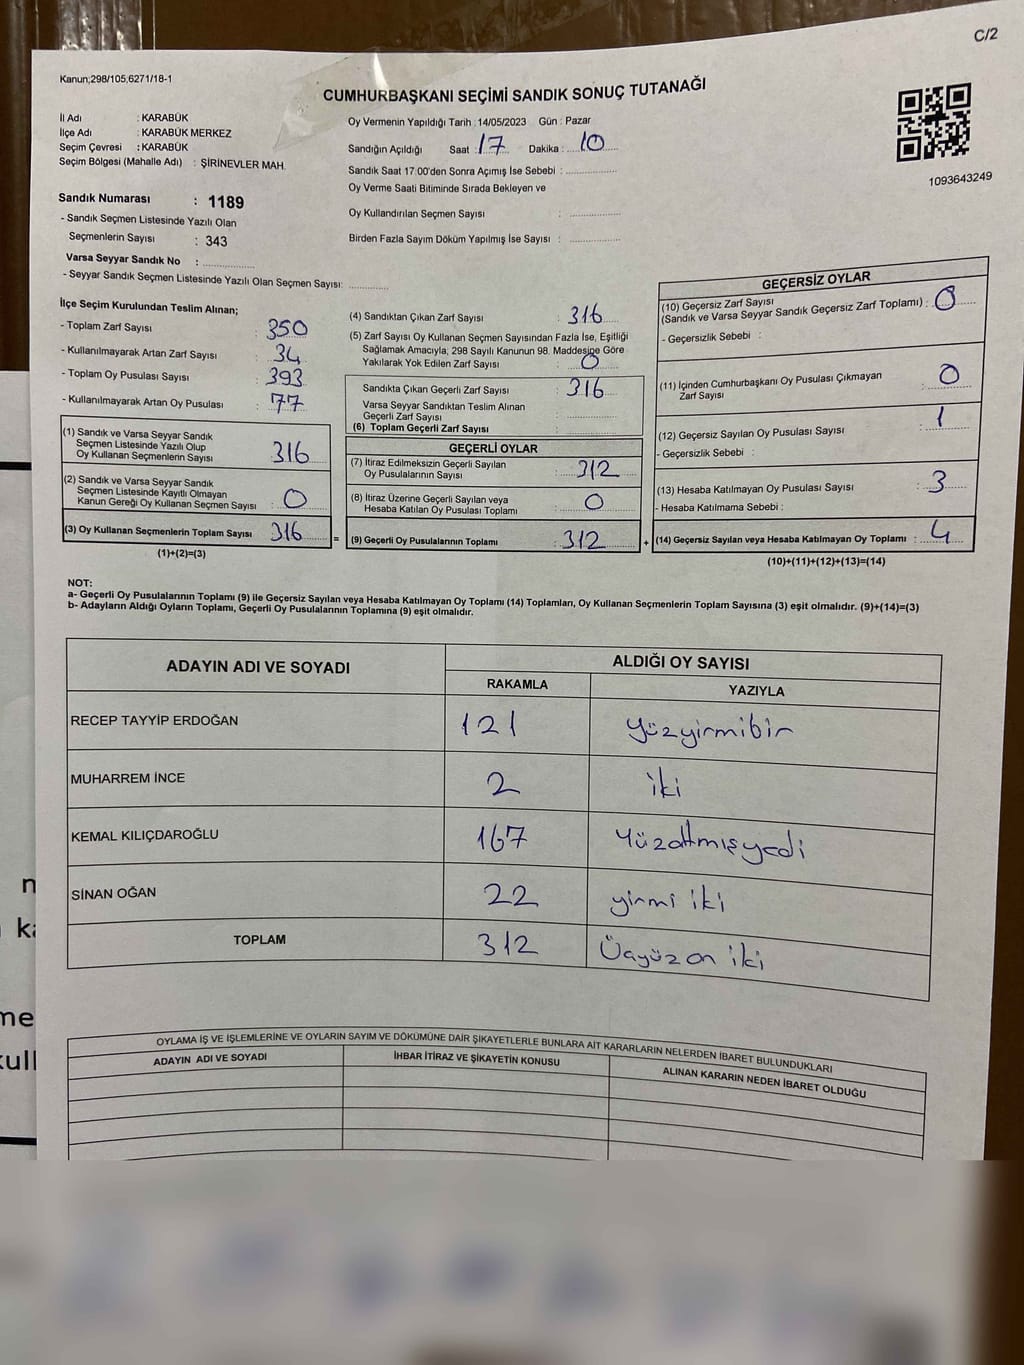 C/2
Kanun;298/105,6271/18-1
CUMHURBAŞKANI SEÇİMİ SANDIK SONUÇ TUTANAĞI
İl Adı : KARABÜK
İlçe Adı : KARABÜK MERKEZ
Seçim Çevresi : KARABÜK
Seçim Bölgesi (Mahalle Adı) : ŞİRİNEVLER MAH.
Oy Vermenin Yapıldığı Tarih : 14/05/2023 Gün : Pazar
Sandığın Açıldığı Saat : 17 Dakika : 10
Sandık Saat 17:00'den Sonra Açımış İse Sebebi :
Oy Verme Saati Bitiminde Sırada Bekleyen ve
Oy Kullandırılan Seçmen Sayısı :
Birden Fazla Sayım Döküm Yapılmış İse Sayısı :
1093643249
Sandık Numarası : 1189
- Sandık Seçmen Listesinde Yazılı Olan
Seçmenlerin Sayısı : 343
Varsa Seyyar Sandık No :
- Seyyar Sandık Seçmen Listesinde Yazılı Olan Seçmen Sayısı:
İlçe Seçim Kurulundan Teslim Alınan;
- Toplam Zarf Sayısı : 350
- Kullanılmayarak Artan Zarf Sayısı : 34
- Toplam Oy Pusulası Sayısı : 393
- Kullanılmayarak Artan Oy Pusulası : 77
(1) Sandık ve Varsa Seyyar Sandık
Seçmen Listesinde Yazılı Olup
Oy Kullanan Seçmenlerin Sayısı : 316
(2) Sandık ve Varsa Seyyar Sandık
Seçmen Listesinde Kayıtlı Olmayan
Kanun Gereği Oy Kullanan Seçmen Sayısı : 0
(3) Oy Kullanan Seçmenlerin Toplam Sayısı 316 =
(1)+(2)=(3)
(4) Sandıktan Çıkan Zarf Sayısı : 316
(5) Zarf Sayısı Oy Kullanan Seçmen Sayısından Fazla İse, Eşitliği
Sağlamak Amacıyla, 298 Sayılı Kanunun 98. Maddesine Göre
Yakılarak Yok Edilen Zarf Sayısı : 0
Sandıkta Çıkan Geçerli Zarf Sayısı : 316
Varsa Seyyar Sandıktan Teslim Alınan
Geçerli Zarf Sayısı :
(6) Toplam Geçerli Zarf Sayısı :
GEÇERLİ OYLAR
(7) İtiraz Edilmeksizin Geçerli Sayılan
Oy Pusulalarının Sayısı : 312
(8) İtiraz Üzerine Geçerli Sayılan veya
Hesaba Katılan Oy Pusulası Toplamı : 0
(9) Geçerli Oy Pusulalarının Toplamı : 312 +
GEÇERSİZ OYLAR
(10) Geçersiz Zarf Sayısı
(Sandık ve Varsa Seyyar Sandık Geçersiz Zarf Toplamı) : 0
- Geçersizlik Sebebi :
(11) İçinden Cumhurbaşkanı Oy Pusulası Çıkmayan
Zarf Sayısı : 0
(12) Geçersiz Sayılan Oy Pusulası Sayısı : 1
- Geçersizlik Sebebi :
(13) Hesaba Katılmayan Oy Pusulası Sayısı : 3
- Hesaba Katılmama Sebebi :
(14) Geçersiz Sayılan veya Hesaba Katılmayan Oy Toplamı : 4
(10)+(11)+(12)+(13)=(14)
NOT:
a- Geçerli Oy Pusulalarının Toplamı (9) ile Geçersiz Sayılan veya Hesaba Katılmayan Oy Toplamı (14) Toplamları, Oy Kullanan Seçmenlerin Toplam Sayısına (3) eşit olmalıdır. (9)+(14)=(3)
b- Adayların Aldığı Oyların Toplamı, Geçerli Oy Pusulalarının Toplamına (9) eşit olmalıdır.
ADAYIN ADI VE SOYADI
ALDIĞI OY SAYISI
RAKAMLA YAZIYLA
RECEP TAYYİP ERDOĞAN 121 yüzyirmibir
MUHARREM İNCE 2 iki
KEMAL KILIÇDAROĞLU 167 Yüzatmışyedi
SİNAN OĞAN 22 yirmi iki
TOPLAM 312 Üçyüz on iki
OYLAMA İŞ VE İŞLEMLERİNE VE OYLARIN SAYIM VE DÖKÜMÜNE DAİR ŞİKAYETLERLE BUNLARA AİT KARARLARIN NELERDEN İBARET BULUNDUKLARI
ADAYIN ADI VE SOYADI İHBAR İTİRAZ VE ŞİKAYETİN KONUSU ALINAN KARARIN NEDEN İBARET OLDUĞU